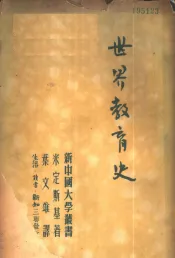 世界教育史
新中國大學叢書
米定斯基著
葉文雄譯
生活·讀書·新知三聯書店